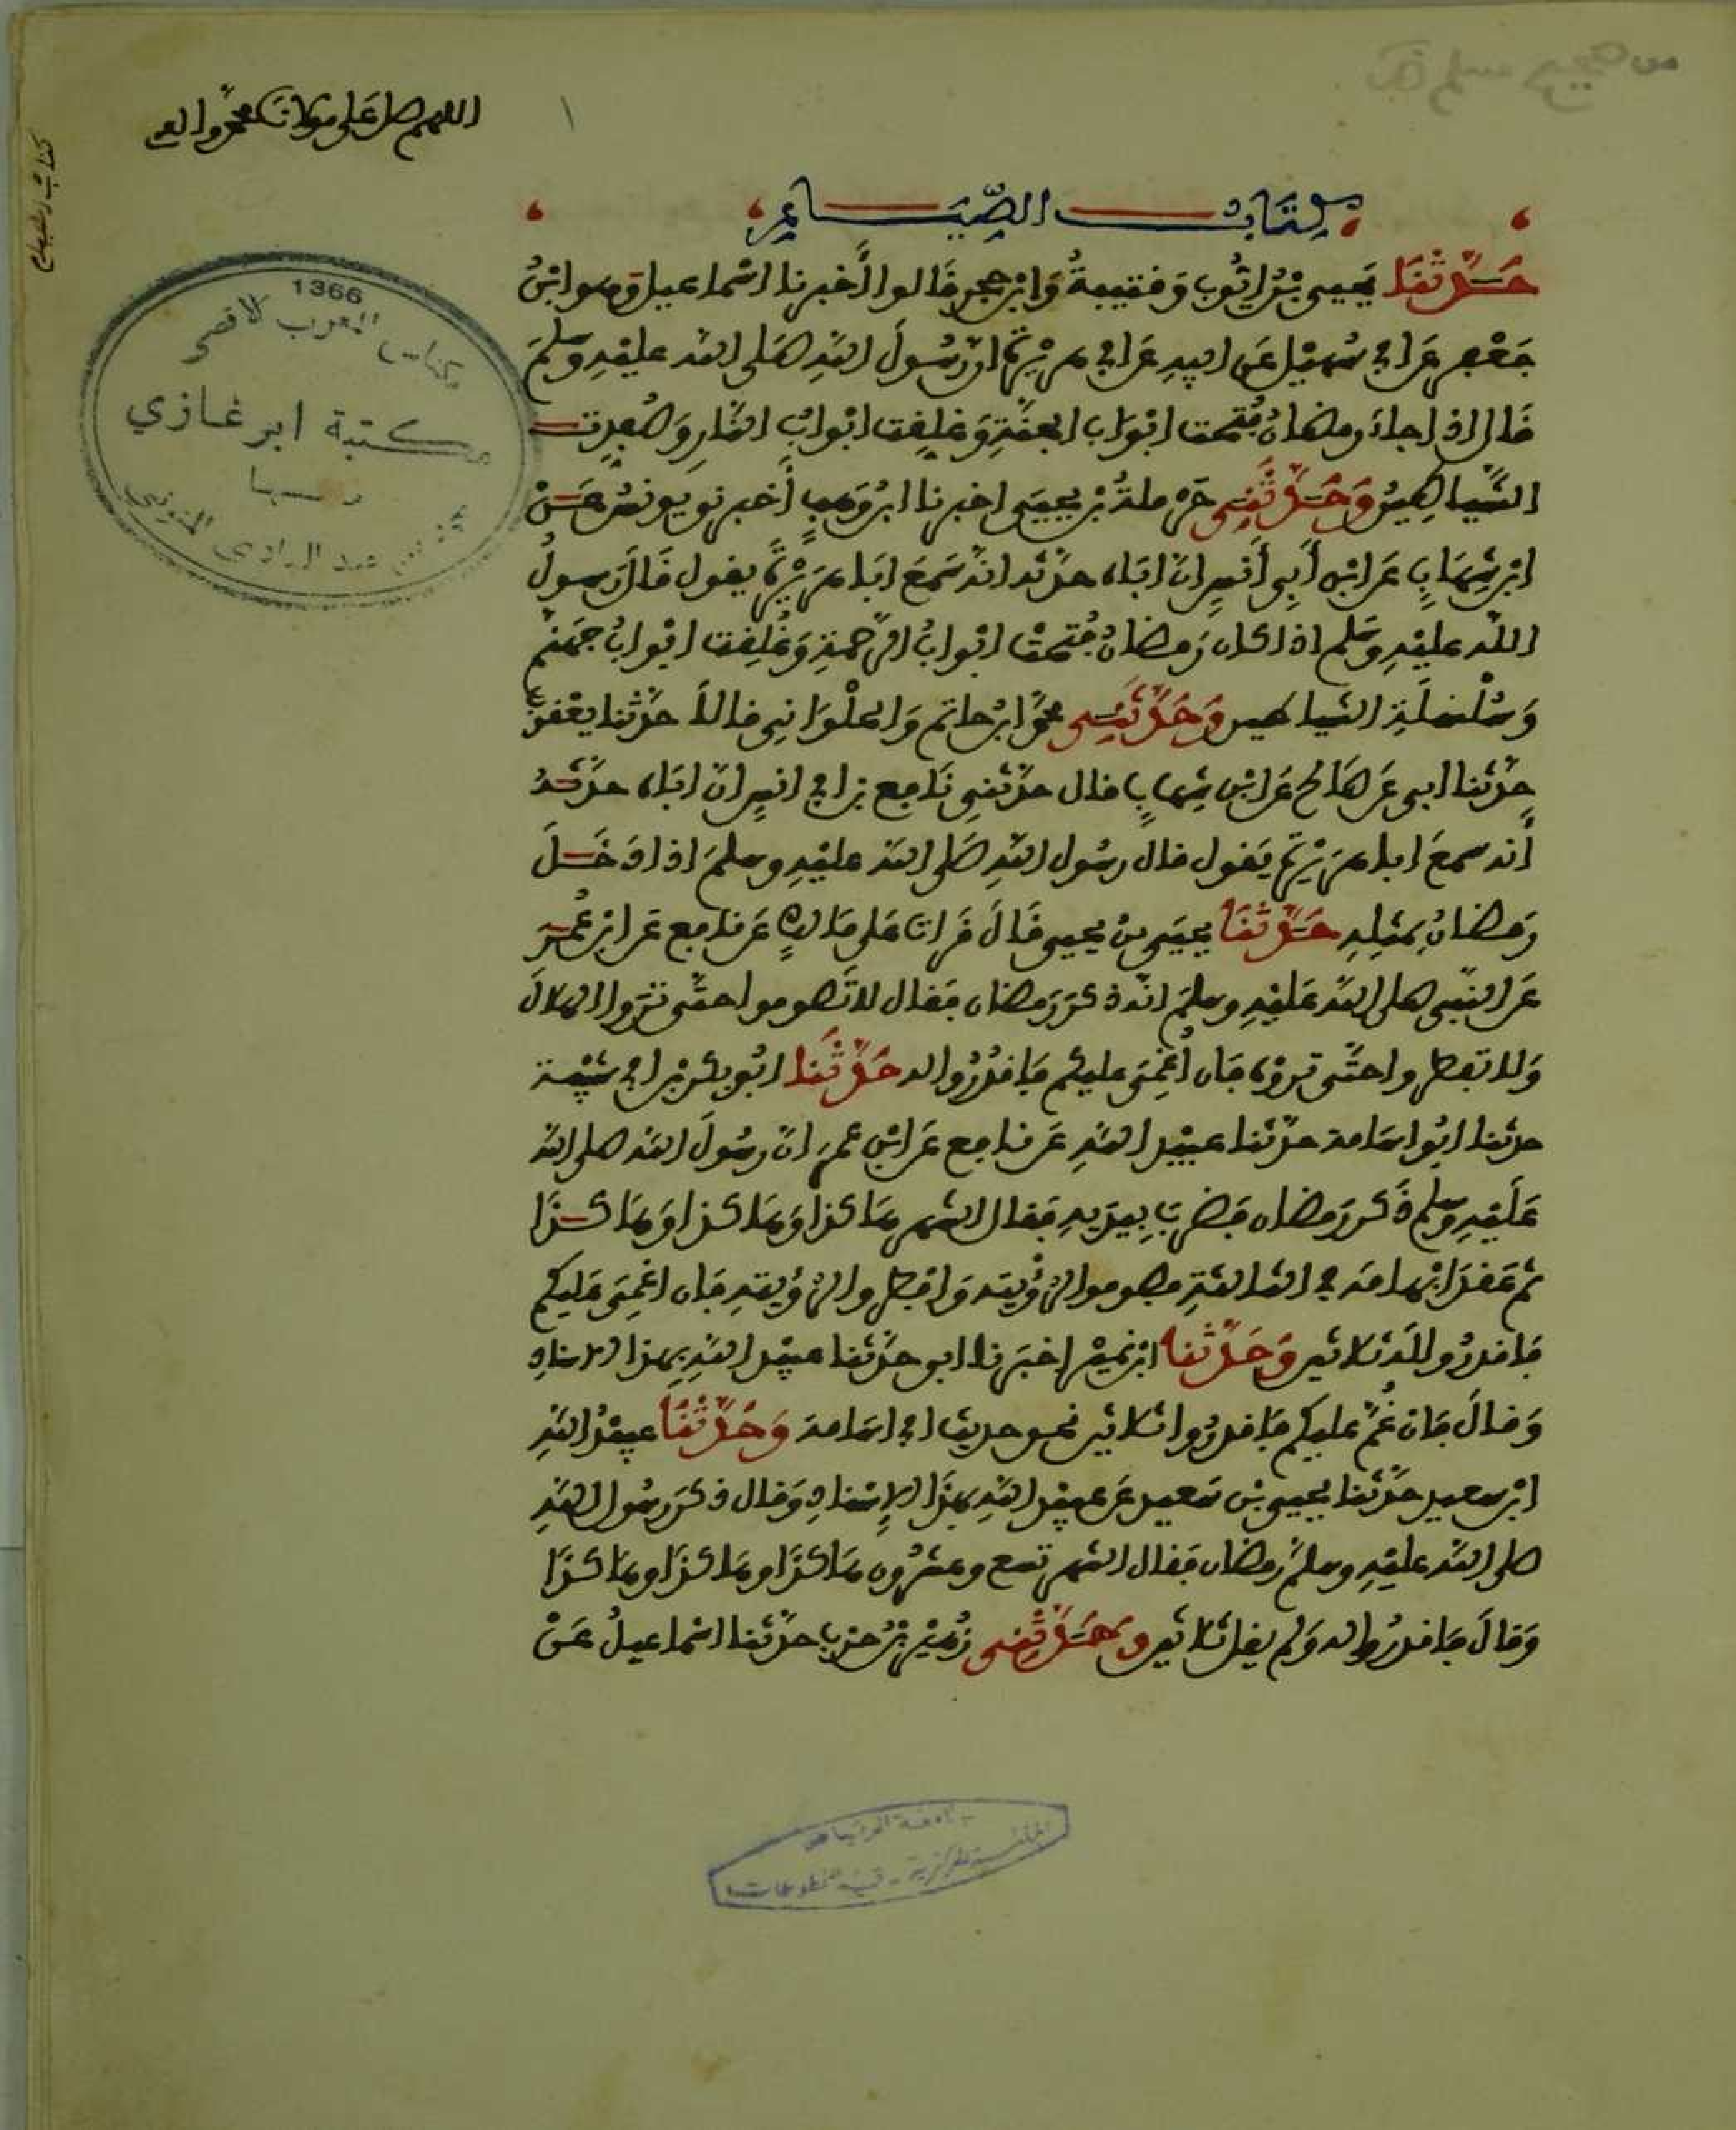 من صحيح مسلم
اللهم صل على مولانا محمد وآله
١
كتاب الصيام
كتاب الصِّيَام
حَدَّثَنَا يحيى بْنُ ايُّوب وَقتيبةُ وَابن حجر قَالوا أَخبرنا اسْماعيل وهو ابْنُ
جَعْفر عَن ابي سُهيْل عَن ابيهِ عَن ابي هريْرة انّ رَسُولَ اللهِ صَلى الله عليْهِ وَسلمَ
قال اذا جاءَ رمضانُ فُتحت ابْوَاب الجنّةِ وَغلِقت ابْوابُ النّارِ وَصُفِدتِ
الشّيَاطِينُ وَحَدَّثَنِي حَرْملةُ بْن يحيَى اخبرنا ابنُ وَهبٍ أَخبرني يونسُ عَنْ
ابْن شِهَابٍ عَن ابْن أَبِي أَنسٍ انّ ابَاه حدّثه انّه سَمعَ ابَا هرَيْرةَ يقول قَالَ رَسولُ
اللّه عليْهِ وَسَلم اذا كان رَمضانُ فُتحتْ ابْوابُ الرّحمةِ وَغُلِقت ابْوابُ جهَنم
وَسُلْسلَتِ الشّياطين وَحَدَّثَنِي محمدُ ابْن حاتم وَالحلْوَانِي قالاَ حدّثنا يعْقوبُ
حدّثنا ابي عَن صَالح عَن ابْن شِهابٍ قال حدّثنِي نَافع بن ابي انسٍ انّ ابَاه حدّثهُ
أَنه سمعَ ابا هرَيْرة يَقول قالَ رسُول اللهِ صَلى الله عليْهِ وسلمَ اذا دَخَلَ
رَمضانُ بِمثلِهِ حَدَّثَنَا يحيَى بن يحيى قَالَ قَرات عَلى مَالكٍ عَن نافع عَن ابن عُمر
عَن النّبِى صلى الله عَليْهِ وسلمَ انّه ذكرَ رَمضان فقال لا تَصوموا حتّى تَرَوا الهلالَ
وَلا تفطروا حتّى تروْه فان أُغْمِيَ عليكم فاقدُرُوا له حَدَّثَنَا ابُو بكر بْن ابي شيْبة
حدثنا ابُو اسَامة حدّثنا عبيْد اللهِ عَن نافع عَن ابْن عمر انّ رسُولَ الله صلى الله
عَليْهِ وسلم ذَكر رَمضان فضرَبَ بِيَدَيهِ فقال الشّهر هَاكذا وَهَاكذا وَهَاكذَا
ثم عَقدَ ابْهامَه في الثّالثةِ فصوموا لرُؤْيتهِ وَافطروا لرُؤْيتهِ فان اغْمِيَ عَليكم
فاقدرُوا له ثلاثين وَحَدَّثَنَا ابْن نميْر اخبَرنا ابي حدّثنا عبيْد اللهِ بهذا الاسْنادِ
وَقالَ فان غُمّ عليكم فاقدرُوا ثلاثين نحو حديث ابي اسَامة وَحَدَّثَنَا عبيْدُ اللهِ
ابْن سعيد حدّثنا يحيى بْن سَعيد عَن عبيْد اللهِ بهذَا الإِسْنادِ وَقال ذكرَ رسُول اللهِ
صلى الله عليْهِ وسلمَ رمضان فقال الشّهر تسع وعشرُون هَاكذَا وهاكذَا وهاكذَا
وَقالَ فاقدرُوا له وَلم يقل ثلاثين وَحَدَّثَنِي زُهيْر بْنُ حرب حدّثنا اسْماعيلُ عَنْ
1366
مكناس المغرب الاقصى
مكتبة ابن غازي
لصاحبها
محمد بن عبد الهادي المنوني
جامعة الرياض
المكتبة المركزية - قسم المخطوطات